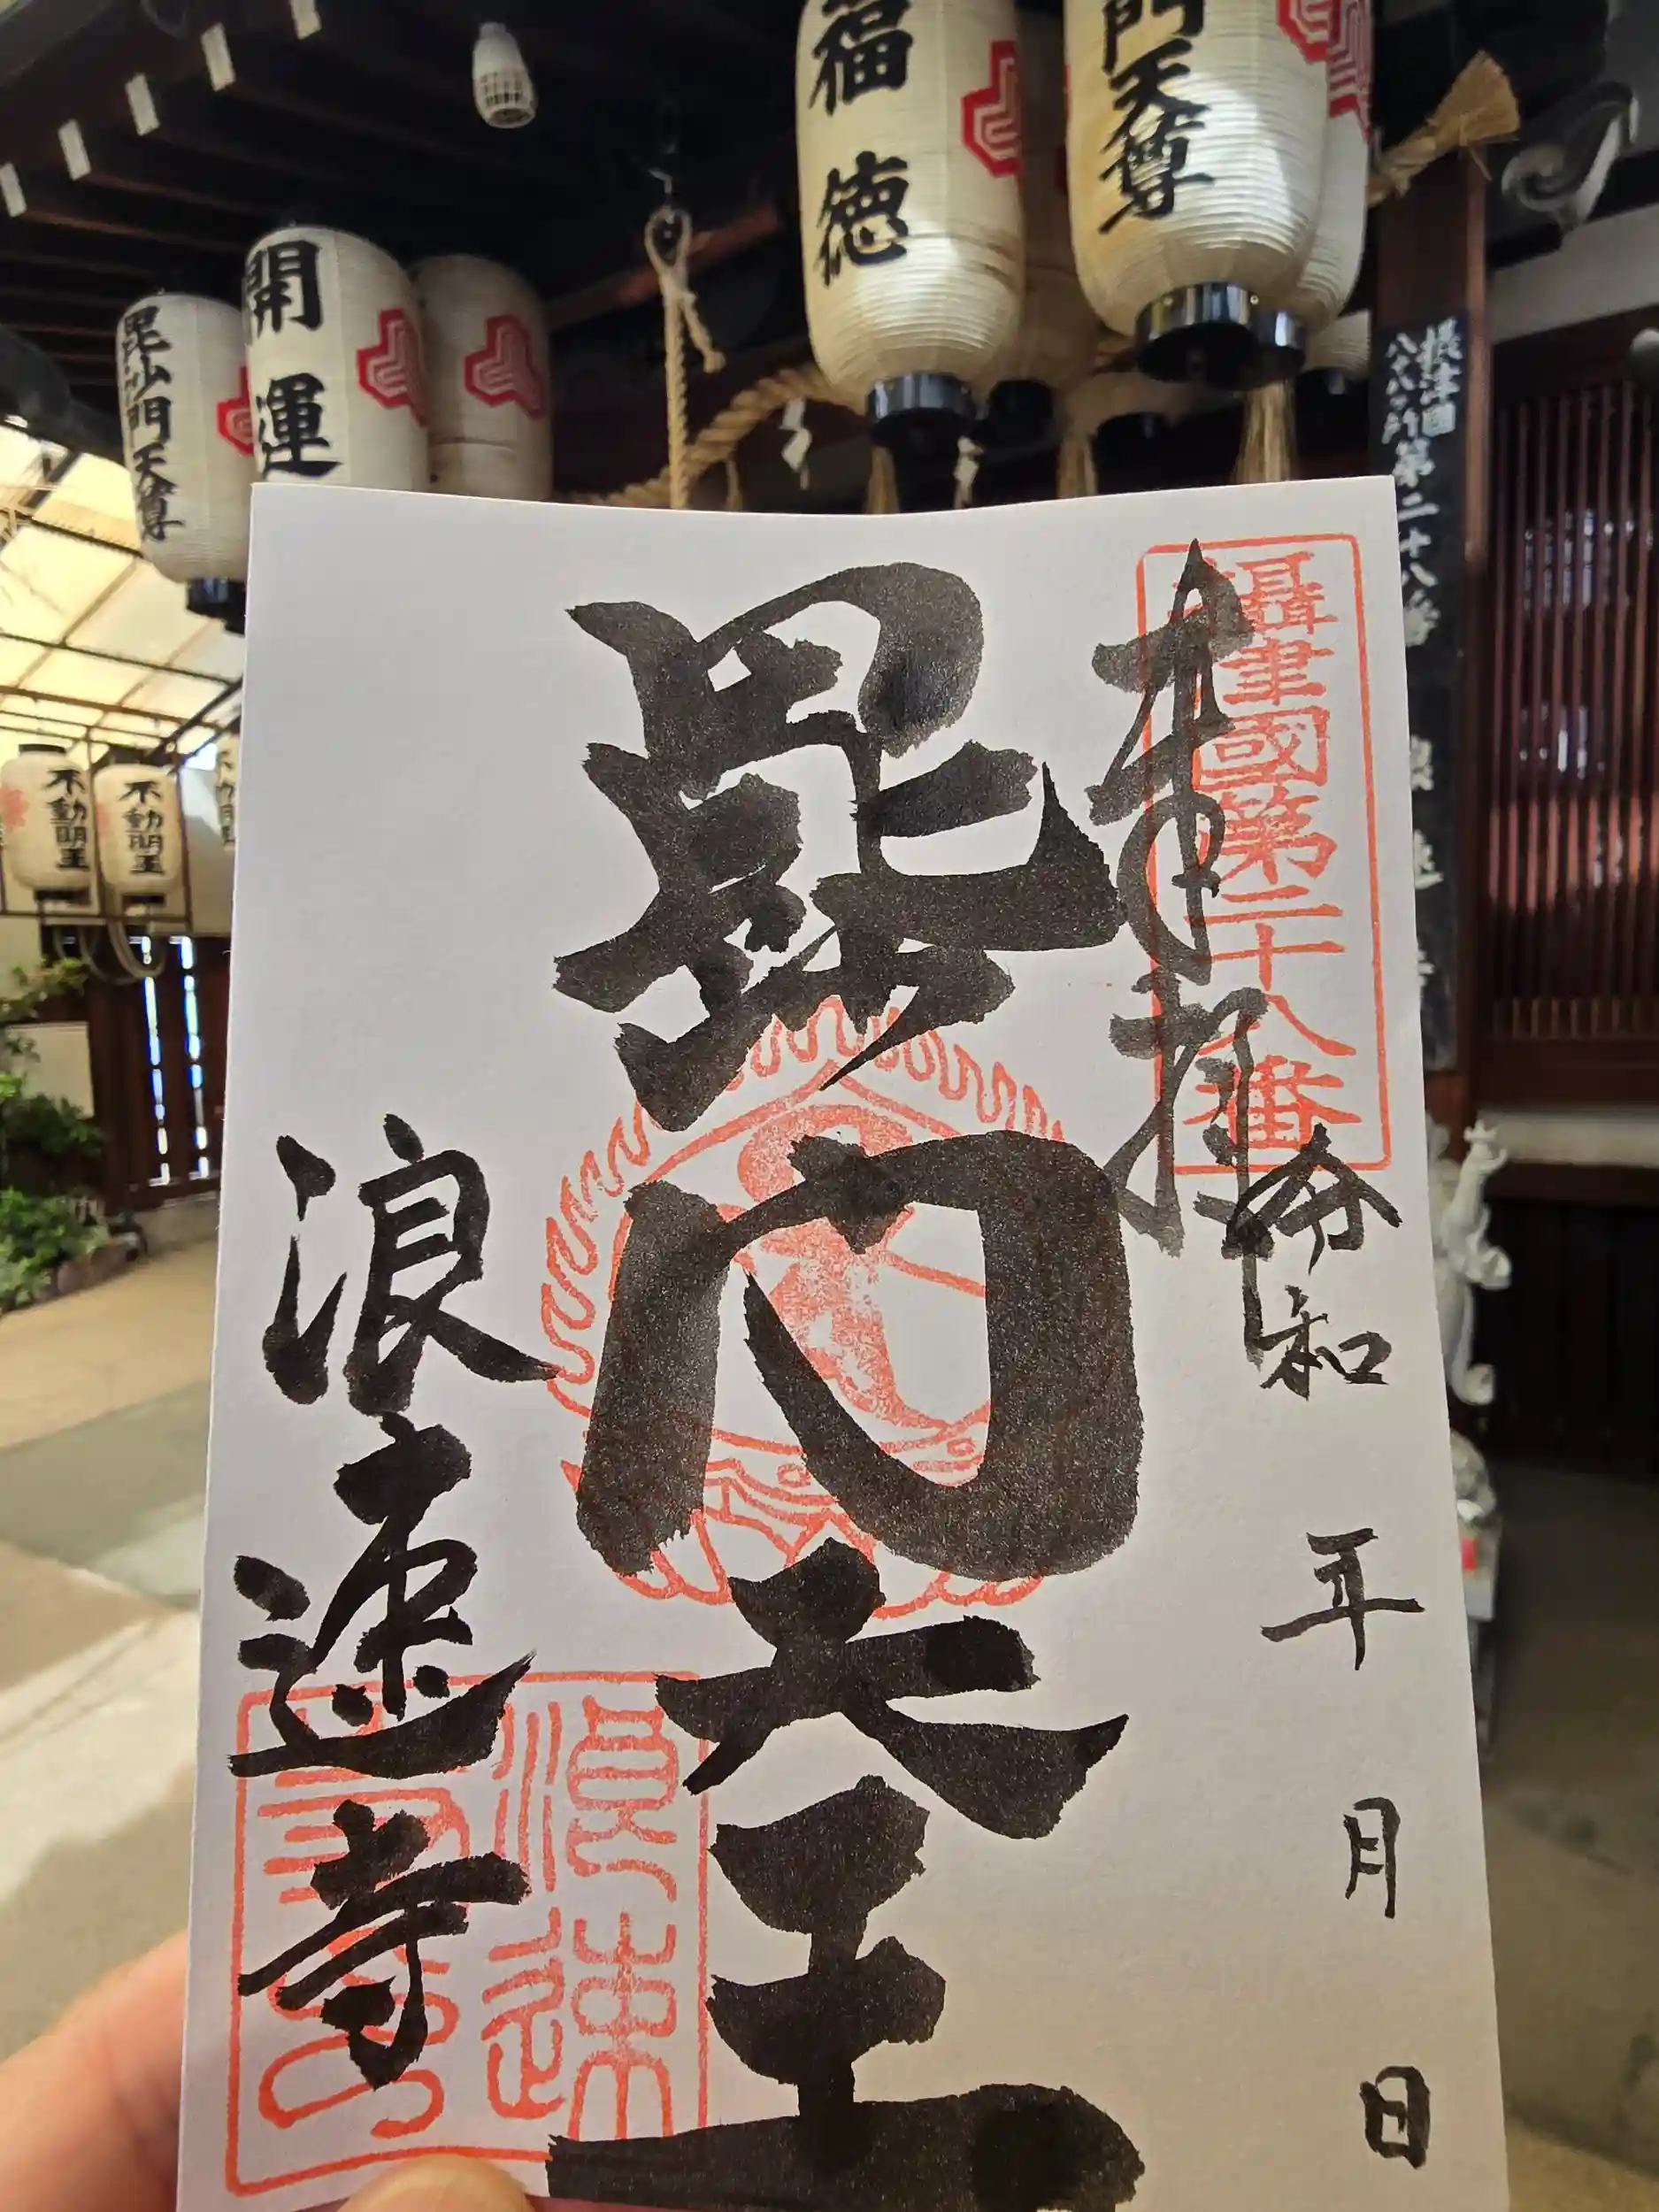 福徳
門天尊
開運
毘沙門天尊
摂津国
八十八所第二十八番
不動明王
不動明王
奉拝
攝津國第二十八番
令和 年 月 日
毘沙門天王
浪速寺
浪速